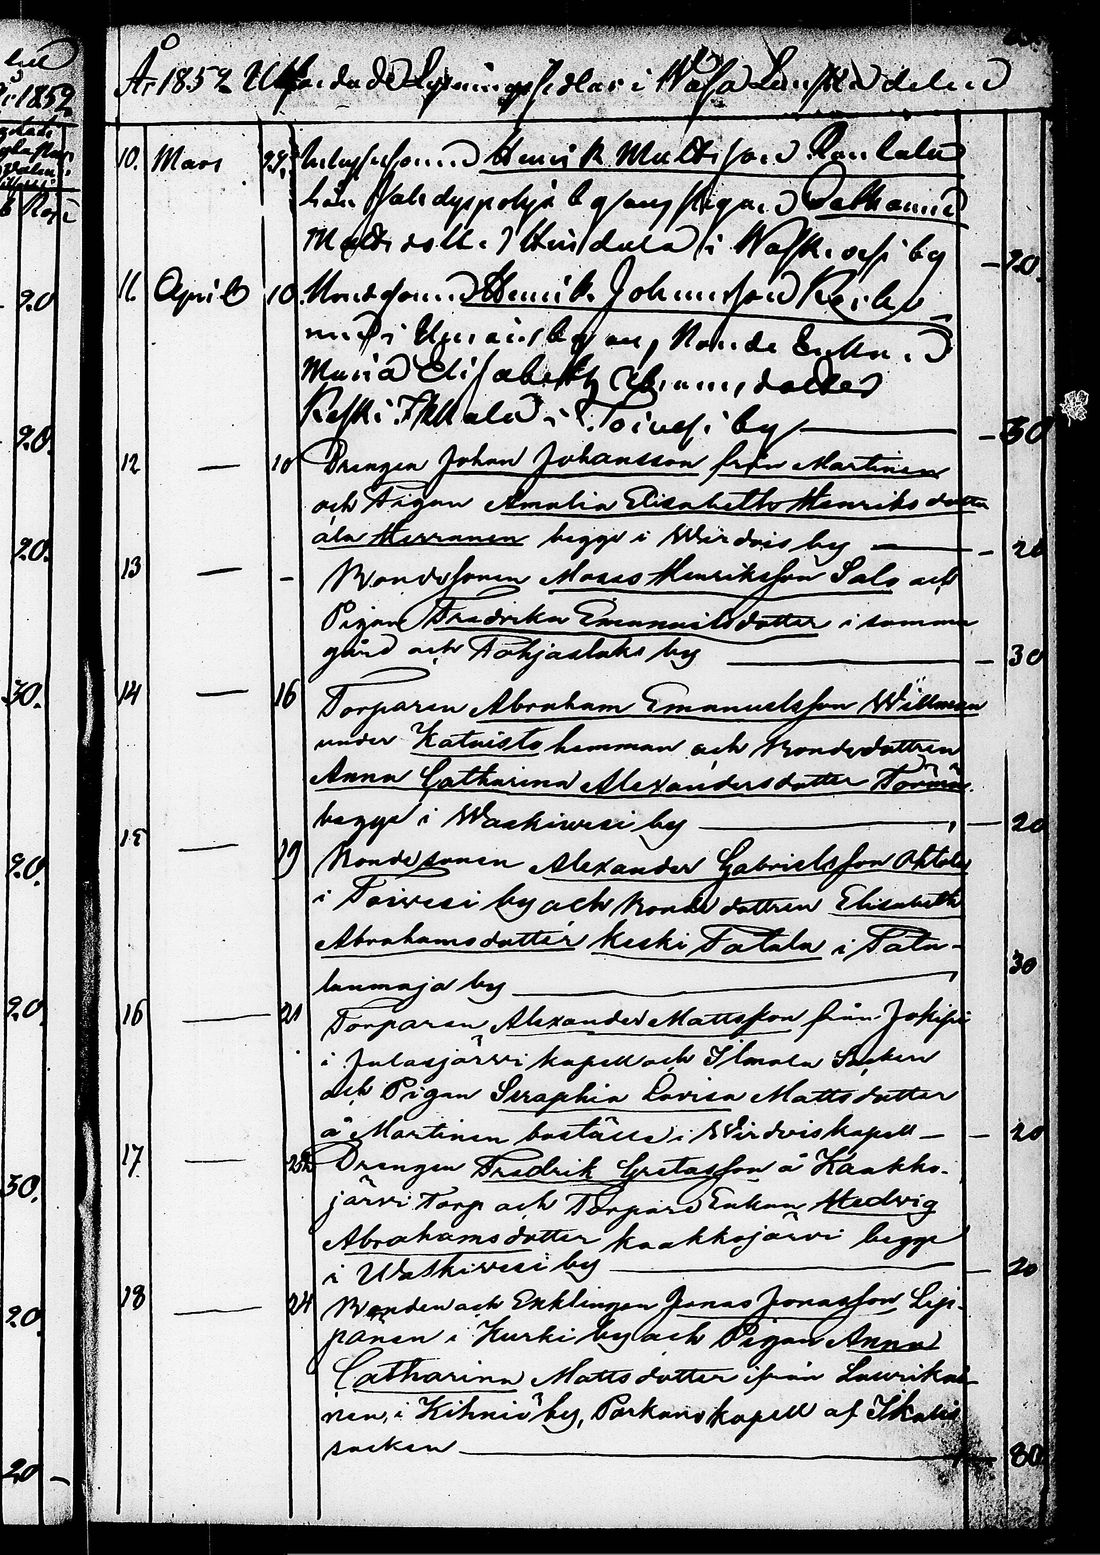 År 1852 Utfärdade Lysningssedlar i Wasa Läns andelen
10. Mars 29. Inhysessonen Henrik Mattsson Rantala
från Sahdyspohja by samt Pigan Catharina
Mattsdotter Hindula i Waskivesi by
20.
11. April 10. Bondsonen Henrik Johansson Keiho
i Urnais by och Bonde Enkan
Maria Elisabeth Abramsdotter
Keski Ikkala i Toivesi by
30
12 — 10 Drengen Johan Johansson från Martinen
och Pigan Amalia Elisabetha Henriksdotter
Herranen begge i Wirdois by — 20
13 — - Bondesonen Moses Henriksson Salo och
Pigan Fredrika Emanuelsdotter i samma
gård och Pohjaslaks by — 30
14 — 16 Torparen Abraham Emanuelsson Willman
under Katvisto hemman och Bondedottren
Anna Catharina Alexandersdotter Törmä
begge i Waskiwesi by — 20
15 — 19 Bondesonen Alexander Gabrielsson Ahtola
i Toivesi by och Bondedottren Elisabeth
Abrahamsdotter Keski Tatala i Täta-
lanmaja by — 30
16 — 21 Torparen Alexander Mattsson från Jokipi
i Jalasjärvi kapell och Ilmola Socken
och Pigan Seraphia Lovisa Mattsdotter
å Martinen boställe i Wirdois kapell — 20
17 — 22 Drengen Fredrik Gretasson å Kaakko-
järvi Torp och Torpare Enkan Hedvig
Abrahamsdotter Kaakkojärvi begge
i Waskiwesi by — 20
18 — 24 Bonden och Enklingen Jonas Jonasson Lep-
pänen i Kurki by och Pigan Anna
Catharina Mattsdotter från Laurikai-
nen, i Kihniö by, Parkano kapell af Ikalis
socken — 80